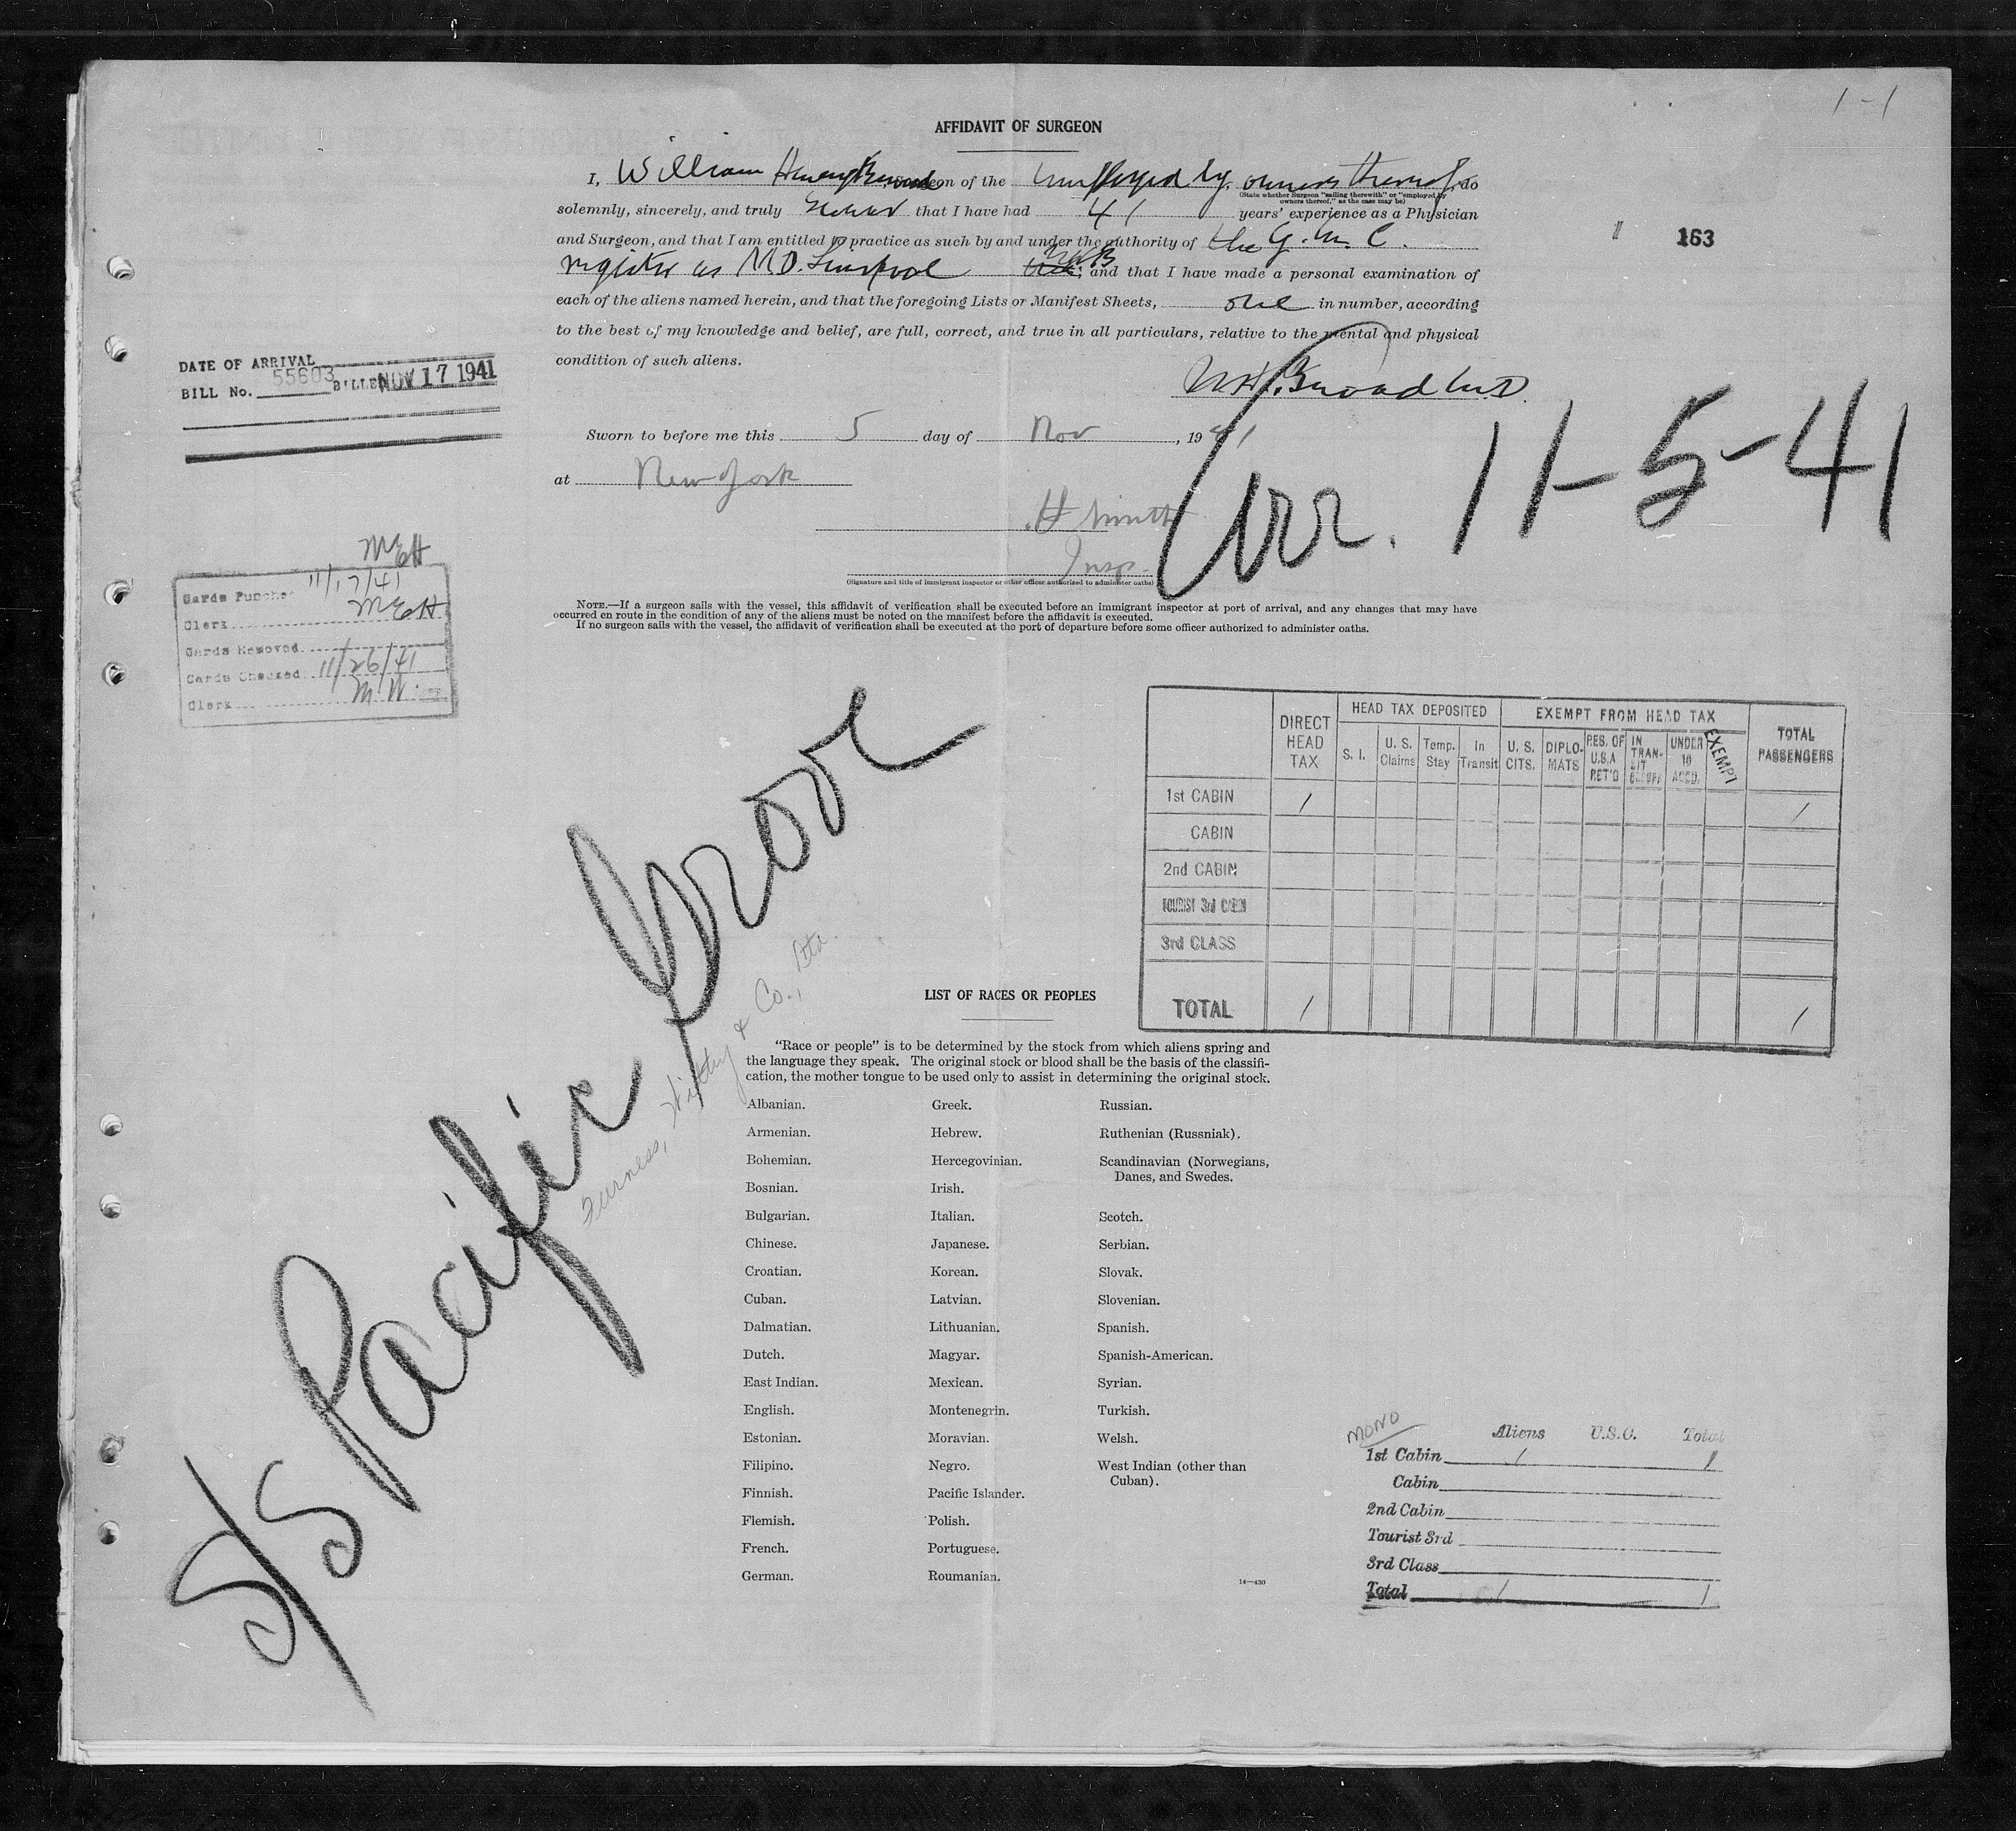 1-1
AFFIDAVIT OF SURGEON
I, William Henry Broad, Surgeon of the employed by owners thereof, do
(State whether Surgeon "sailing therewith" or "employed by owners thereof," as the case may be)
solemnly, sincerely, and truly swear that I have had 41 years' experience as a Physician
and Surgeon, and that I am entitled to practice as such by and under the authority of the G.M.C.
register as M.D. Liverpool and that I have made a personal examination of
each of the aliens named herein, and that the foregoing Lists or Manifest Sheets, one in number, according
to the best of my knowledge and belief, are full, correct, and true in all particulars, relative to the mental and physical
condition of such aliens.
163
W.H. Broad M.D.
DATE OF ARRIVAL
BILL No. 55603 BILLED NOV 17 1941
Sworn to before me this 5 day of Nov, 1941
at New York
H Smith
Insp.
(Signature and title of immigrant inspector or other officer authorized to administer oaths)
Arr. 11-5-41
NOTE.—If a surgeon sails with the vessel, this affidavit of verification shall be executed before an immigrant inspector at port of arrival, and any changes that may have
occurred en route in the condition of any of the aliens must be noted on the manifest before the affidavit is executed.
If no surgeon sails with the vessel, the affidavit of verification shall be executed at the port of departure before some officer authorized to administer oaths.
MEH
Cards Punched 11/17/41
Clerk MEH
Cards Removed
Cards Checked 11/26/41
Clerk M.W.
DIRECT HEAD TAX
HEAD TAX DEPOSITED
EXEMPT FROM HEAD TAX
TOTAL PASSENGERS
S. I.
U. S. Claims
Temp. Stay
In Transit
U. S. CITS.
DIPLO-MATS
RES. OF U.S.A RET'D
IN TRAN-SIT
UNDER 16 ACCD.
EXEMPT
1st CABIN 1 1
CABIN
2nd CABIN
TOURIST 3rd CABIN
3rd CLASS
TOTAL 1 1
S/S Pacific Grove
Furness, Withy & Co., Ltd.
LIST OF RACES OR PEOPLES
"Race or people" is to be determined by the stock from which aliens spring and
the language they speak. The original stock or blood shall be the basis of the classifi-
cation, the mother tongue to be used only to assist in determining the original stock.
Albanian.
Armenian.
Bohemian.
Bosnian.
Bulgarian.
Chinese.
Croatian.
Cuban.
Dalmatian.
Dutch.
East Indian.
English.
Estonian.
Filipino.
Finnish.
Flemish.
French.
German.
Greek.
Hebrew.
Hercegovinian.
Irish.
Italian.
Japanese.
Korean.
Latvian.
Lithuanian.
Magyar.
Mexican.
Montenegrin.
Moravian.
Negro.
Pacific Islander.
Polish.
Portuguese.
Roumanian.
Russian.
Ruthenian (Russniak).
Scandinavian (Norwegians,
Danes, and Swedes.
Scotch.
Serbian.
Slovak.
Slovenian.
Spanish.
Spanish-American.
Syrian.
Turkish.
Welsh.
West Indian (other than
Cuban).
14—430
MONO
Aliens U.S.C. Total
1st Cabin 1 1
Cabin
2nd Cabin
Tourist 3rd
3rd Class
Total 1 1